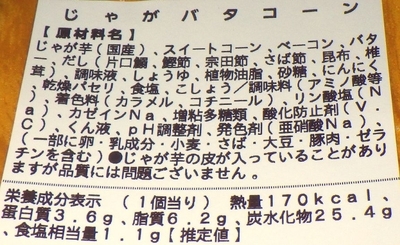 じゃがバタコーン
【原材料名】
じゃが芋(国産)、スイートコーン、ベーコン、バタ
ー、だし(片口鰯、鰹節、宗田節、さば節、昆布、椎
茸)、調味液、しょうゆ、植物油脂、砂糖、にんにく
、乾燥パセリ、食塩、こしょう/調味料(アミノ酸等
)、着色料(カラメル、コチニール)、リン酸塩(N
a)、カゼインNa、増粘多糖類、酸化防止剤(V.
C)、くん液、pH調整剤、発色剤(亜硝酸Na)、
(一部に卵・乳成分・小麦・さば・大豆・豚肉・ゼラ
チンを含む)●じゃが芋の皮が入っていることがあり
ますが品質には問題ございません。
栄養成分表示 (1個当り) 熱量170kcal、
蛋白質3.6g、脂質6.2g、炭水化物25.4g
、食塩相当量1.1g【推定値】